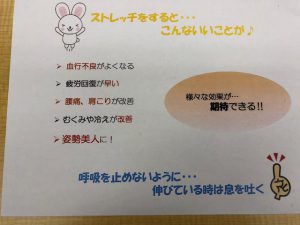 ストレッチをすると・・・
こんないいことが♪
➢ 血行不良がよくなる
➢ 疲労回復が早い
➢ 腰痛、肩こりが改善
➢ むくみや冷えが改善
➢ 姿勢美人に!
様々な効果が…
期待できる!!
呼吸を止めないように・・・
伸びている時は息を吐く